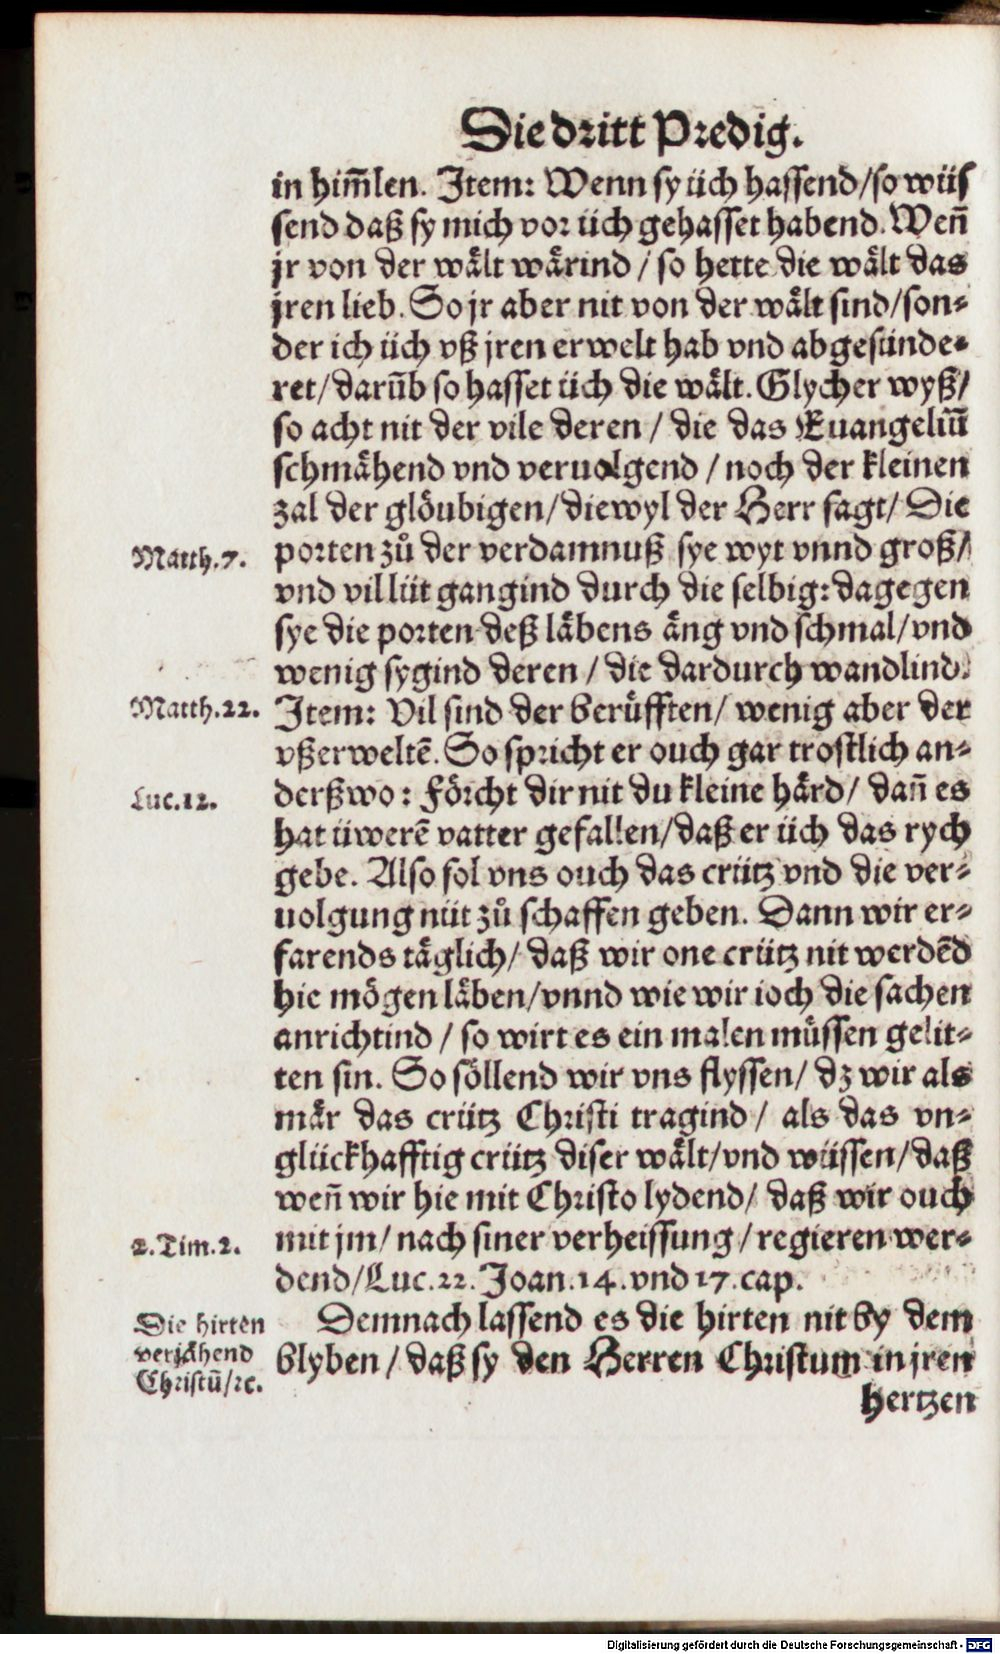 Die dritt Predig.
in him̄len. Item: Wenn sy üch hassend/so wüs
send daß sy mich vor üch gehasset habend. Wen̄
jr von der wält wärind / so hette die wält das
jren lieb. So jr aber nit von der wält sind/son-
der ich üch vß jren erwelt hab vnd abgesünde-
ret/darūb so hasset üch die wält. Glycher wyß/
so acht nit der vile deren / die das Euangeliū
schmähend vnd veruolgend / noch der kleinen
zal der glöubigen/diewyl der Herr sagt/ Die
Matth.7.
porten zů der verdamnuß sye wyt vnnd groß/
vnd vil lüt gangind durch die selbig: dagegen
sye die porten deß läbens äng vnd schmal/vnd
wenig sygind deren / die dardurch wandlind.
Matth.22.
Item: Vil sind der berüfften/ wenig aber der
vßerweltē. So spricht er ouch gar trostlich an-
Luc.12.
derßwo: Förcht dir nit du kleine härd/ dan̄ es
hat üwerē vatter gefallen/daß er üch das rych
gebe. Also sol vns ouch das crütz vnd die ver-
uolgung nüt zů schaffen geben. Dann wir er-
farends täglich/ daß wir one crütz nit werdēd
hie mögen läben/vnnd wie wir ioch die sachen
anrichtind / so wirt es ein malen müssen gelit-
ten sin. So söllend wir vns flyssen/ dz wir als
mär das crütz Christi tragind / als das vn-
glückhafftig crütz diser wält/vnd wüssen/daß
wen̄ wir hie mit Christo lydend/ daß wir ouch
2.Tim.2.
mit jm/ nach siner verheissung/regieren wer-
dend/Luc.22. Joan.14.vnd 17.cap.
Die hirten
verjähend
Christū/ꝛc.
Demnach lassend es die hirten nit by dem
blyben / daß sy den Herren Christum in jren
hertzen
Digitalisierung gefördert durch die Deutsche Forschungsgemeinschaft - DFG